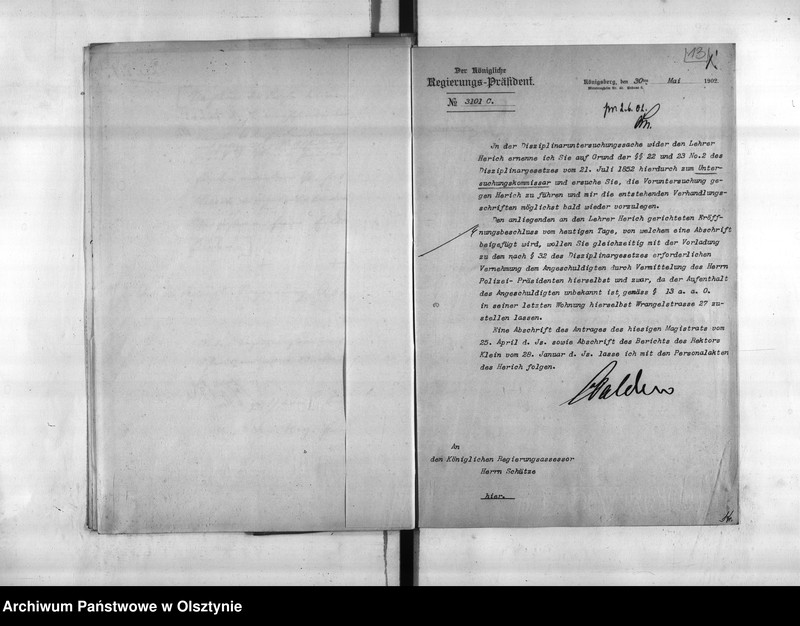 13
Der Königliche
Regierungs-Präsident.
Königsberg, den 30ten Mai 1902.
№ 3101 C.
pr. 2.6.02.
In der Disziplinaruntersuchungssache wider den Lehrer
Herich ernenne ich Sie auf Grund der §§ 22 und 23 No.2 des
Disziplinargesetzes vom 21. Juli 1852 hierdurch zum Unter-
suchungskommissar und ersuche Sie, die Voruntersuchung ge-
gen Herich zu führen und mir die entstehenden Verhandlungs-
schriften möglichst bald wieder vorzulegen.
Den anliegenden an den Lehrer Herich gerichteten Eröff-
nungsbeschluss vom heutigen Tage, von welchem eine Abschrift
beigefügt wird, wollen Sie gleichzeitig mit der Vorladung
zu dem nach § 32 des Disziplinargesetzes erforderlichen
Vernehmung den Angeschuldigten durch Vermittelung des Herrn
Polizei- Präsidenten hierselbst und zwar, da der Aufenthalt
des Angeschuldigten unbekannt ist, gemäss § 13 a. a. O.
in seiner letzten Wohnung hierselbst Wrangelstrasse 27 zu-
stellen lassen.
Eine Abschrift des Antrages des hiesigen Magistrats vom
25. April d. Js. sowie Abschrift des Berichts des Rektors
Klein vom 28. Januar d. Js. lasse ich mit den Personalakten
des Herich folgen.
An
den Königlichen Regierungsassessor
Herrn Schütze
hier.
Archiwum Państwowe w Olsztynie